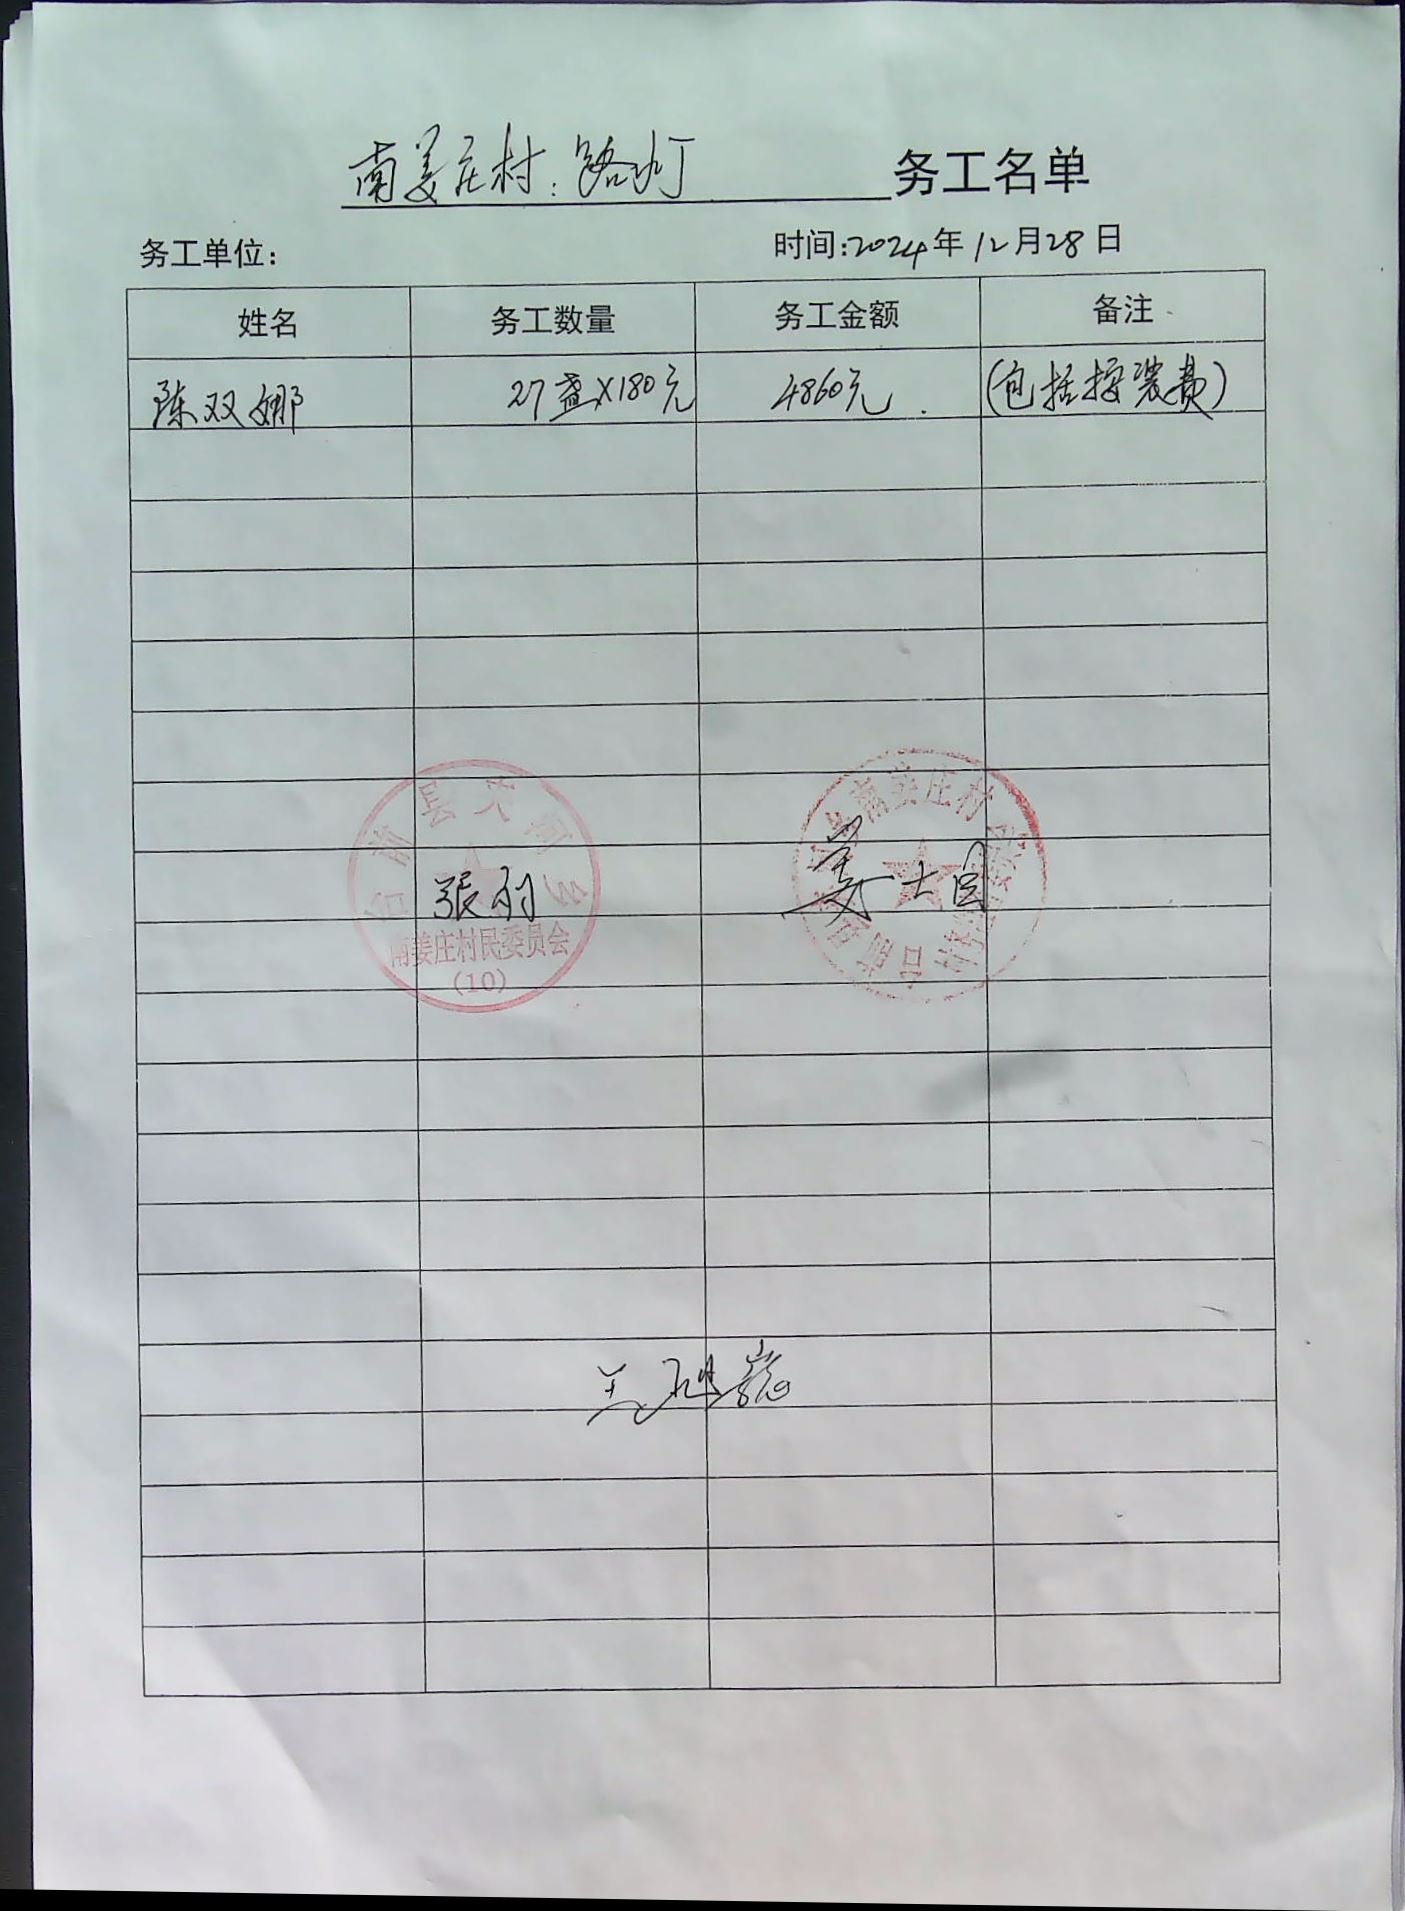 南姜庄村：路灯 务工名单
务工单位： 时间：2024年12月28日
姓名 务工数量 务工金额 备注
陈双娜 27盏×180元 4860元. (包括按装费)
台前县夹河乡
南姜庄村民委员会
(10)
南姜庄村
张
姜士国